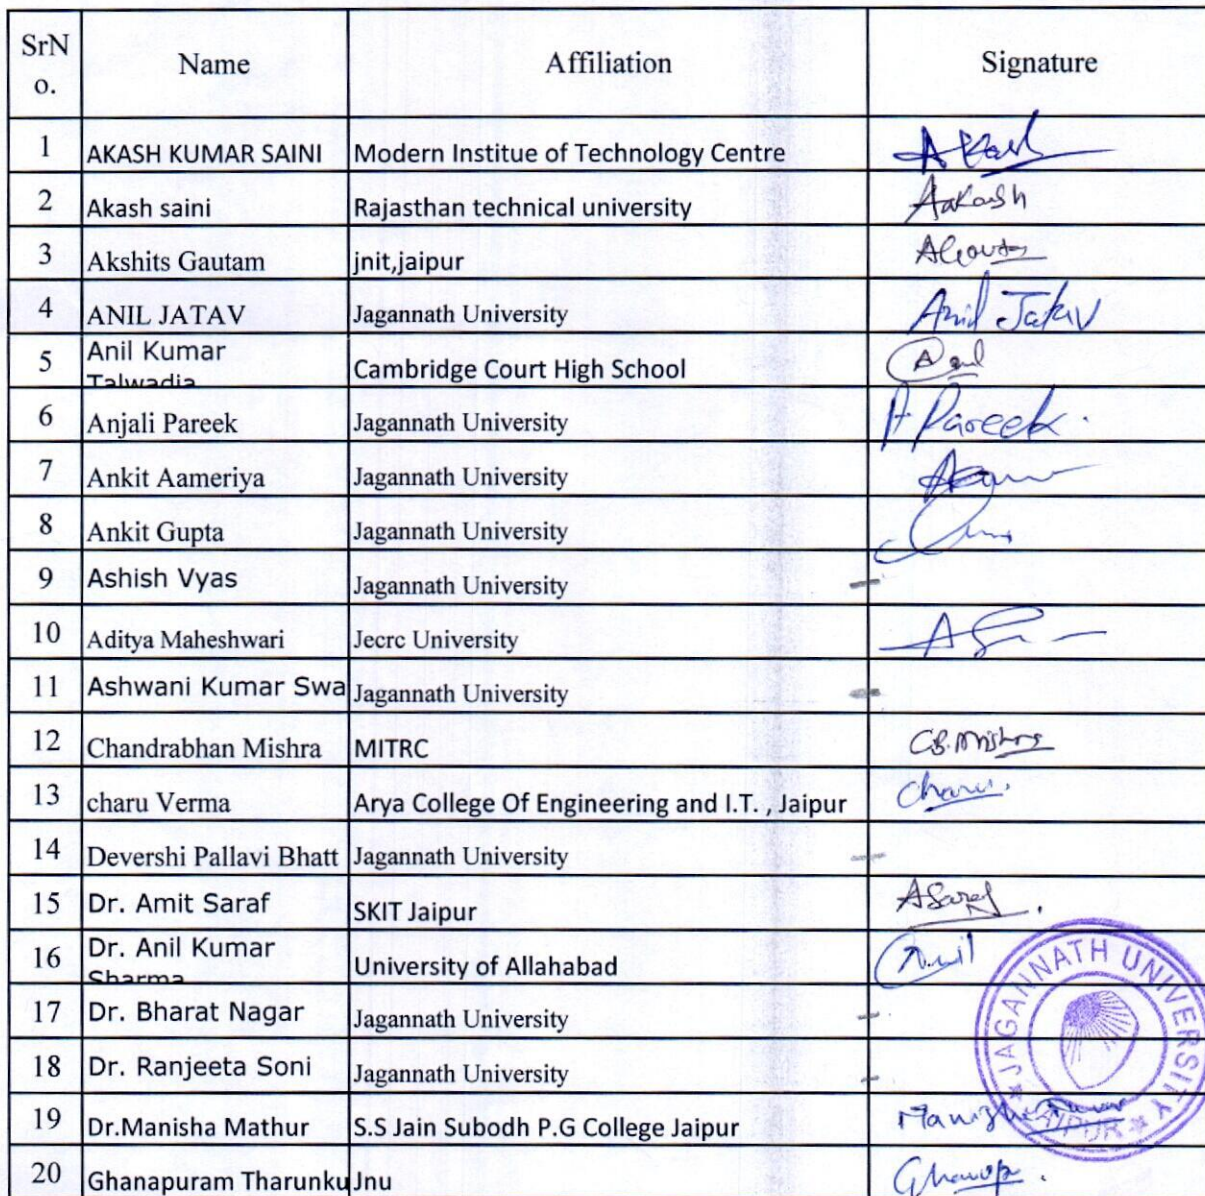 SrN
o.
Name
Affiliation
Signature
1 AKASH KUMAR SAINI Modern Institue of Technology Centre
2 Akash saini Rajasthan technical university Aakash
3 Akshits Gautam jnit,jaipur
4 ANIL JATAV Jagannath University Anil Jatav
5 Anil Kumar
Talwadia Cambridge Court High School
6 Anjali Pareek Jagannath University A Pareek.
7 Ankit Aameriya Jagannath University
8 Ankit Gupta Jagannath University
9 Ashish Vyas Jagannath University -
10 Aditya Maheshwari Jecrc University
11 Ashwani Kumar Swa Jagannath University -
12 Chandrabhan Mishra MITRC C.B. Mishra
13 charu Verma Arya College Of Engineering and I.T. , Jaipur charu.
14 Devershi Pallavi Bhatt Jagannath University -
15 Dr. Amit Saraf SKIT Jaipur ASaraf.
16 Dr. Anil Kumar
Sharma University of Allahabad Anil
17 Dr. Bharat Nagar Jagannath University -
18 Dr. Ranjeeta Soni Jagannath University -
19 Dr.Manisha Mathur S.S Jain Subodh P.G College Jaipur
20 Ghanapuram Tharunku Jnu
JAGANNATH UNIVERSITY
JAIPUR